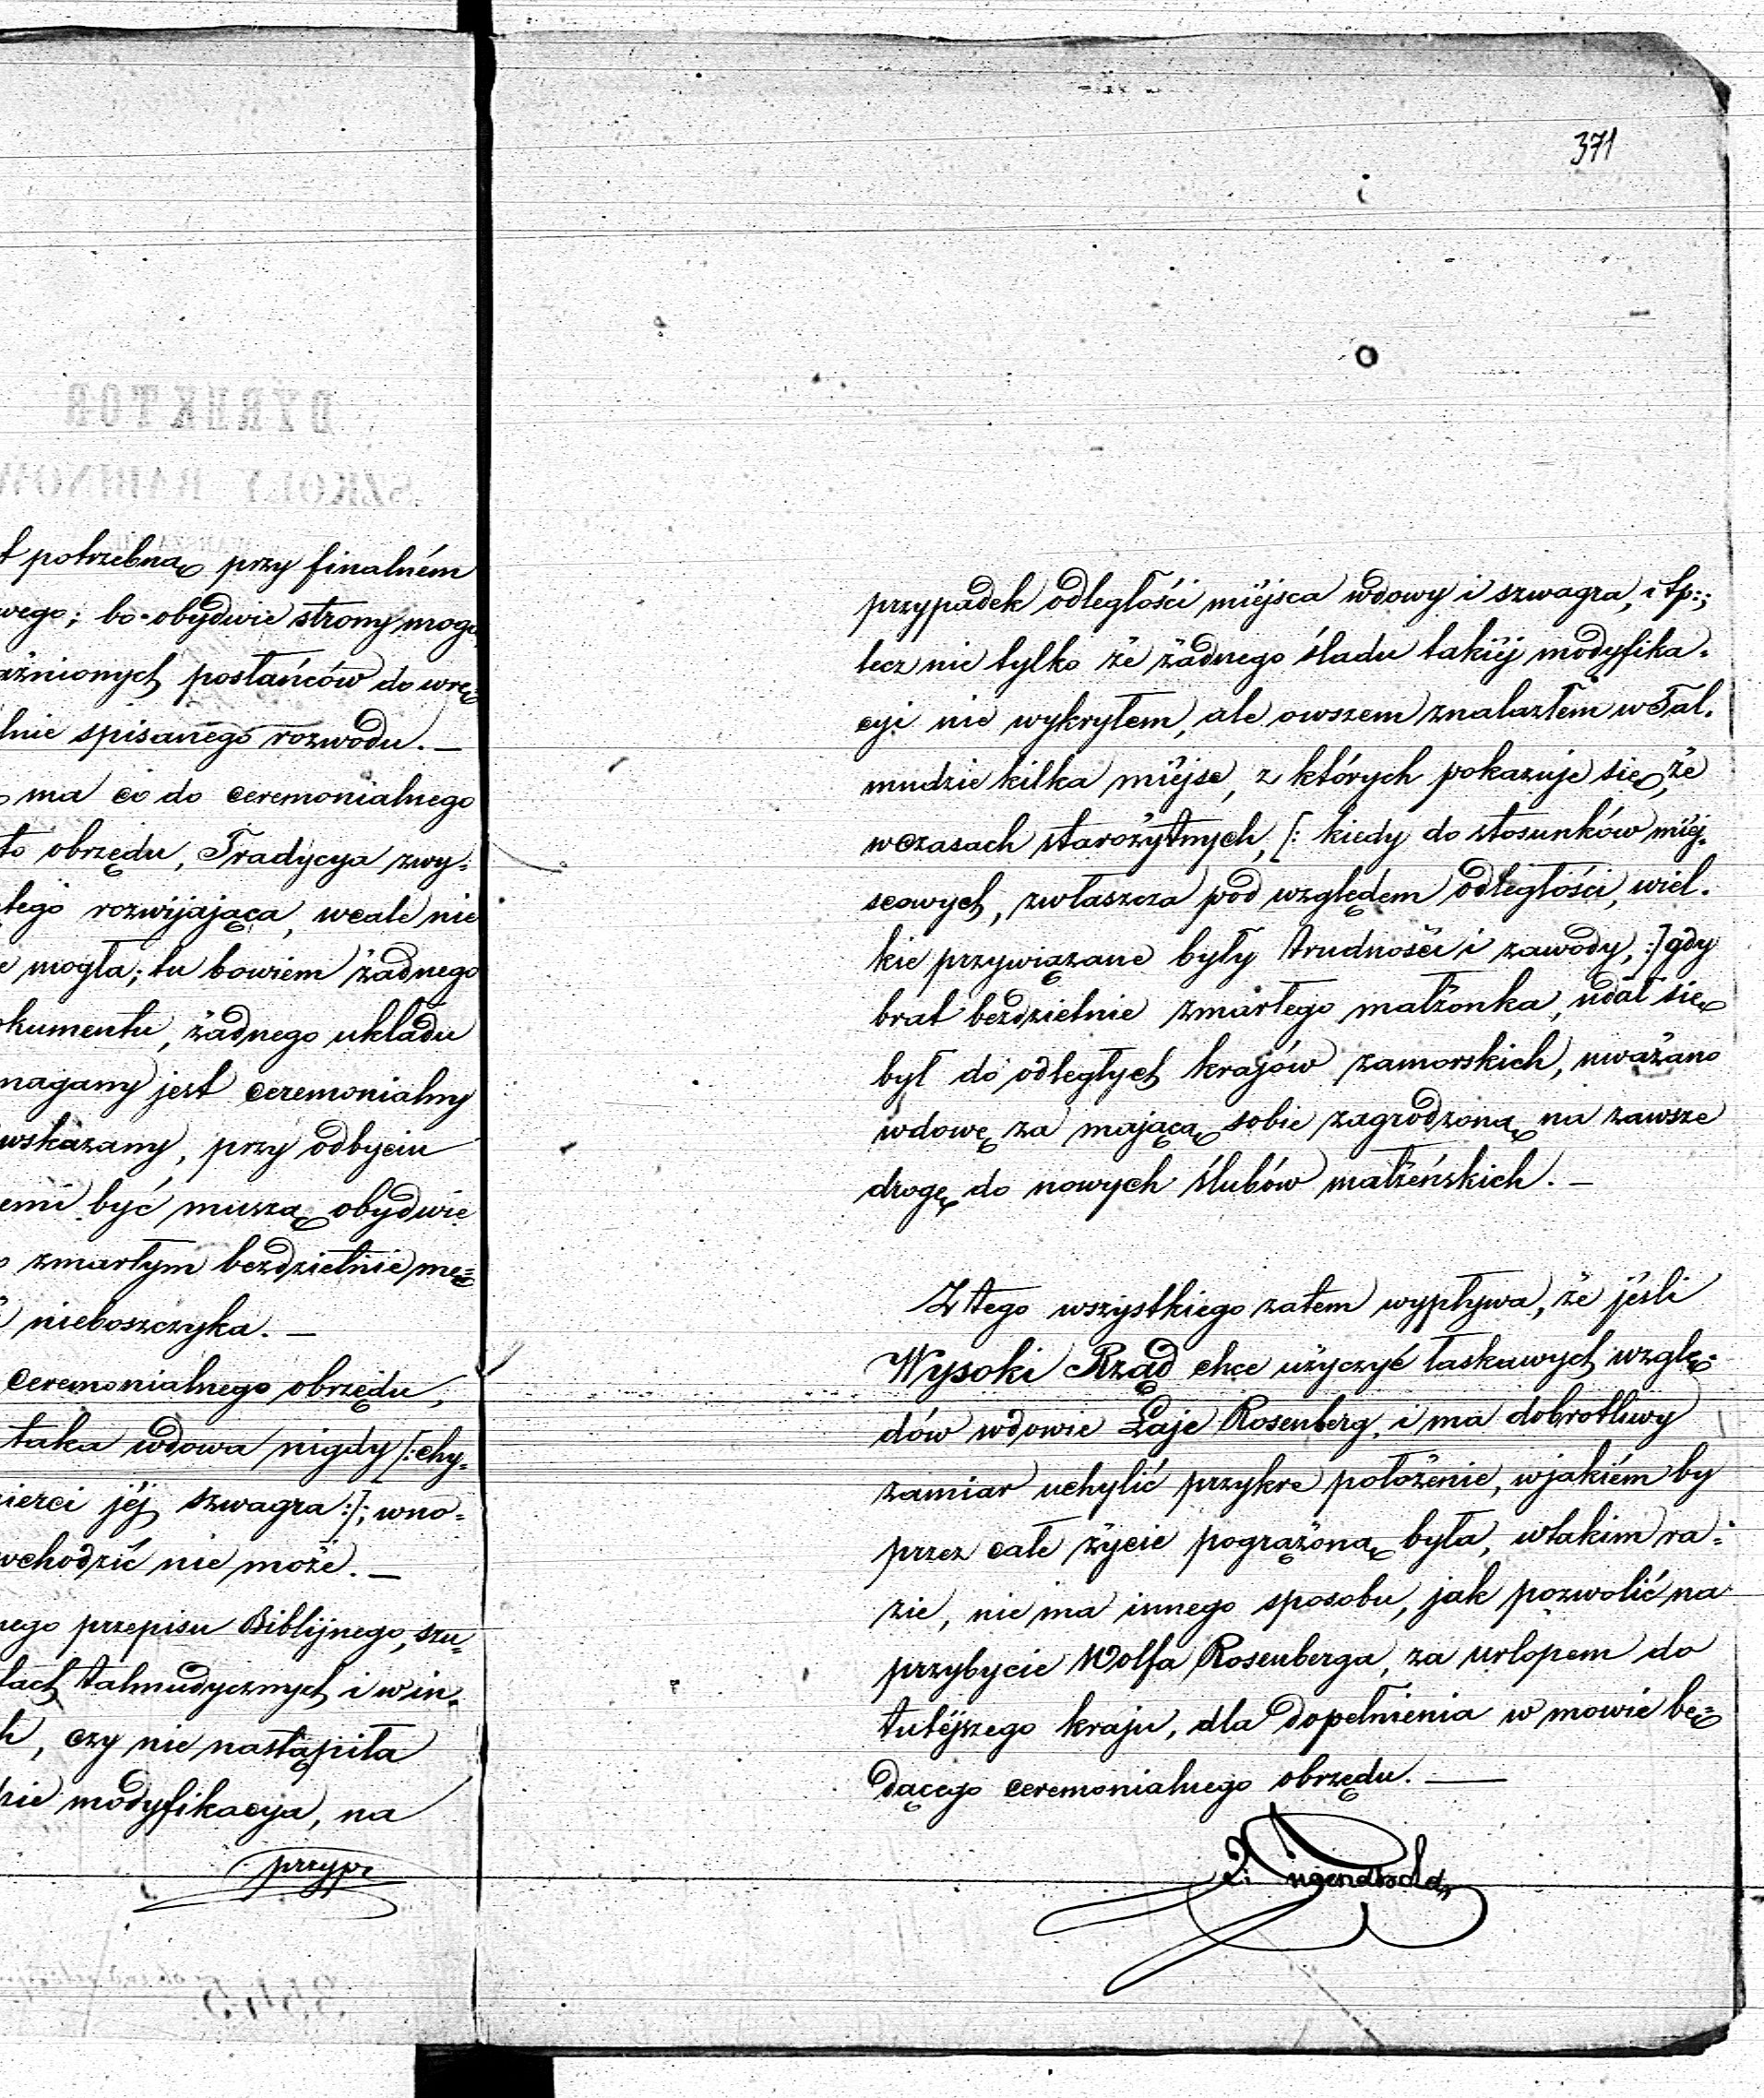 DYREKTOR
SZKOŁY RABINÓW
t potrzebną przy finalném
wego; bo obydwie strony mogą
aźnionych posłańców do wrę=
lnie spisanego rozwodu. —
ma co do ceremonialnego
to obrzędu, Tradycya zwy=
tego rozwijająca, wcale nie
e mogła; tu bowiem żadnego
okumentu, żadnego układu
magany jest ceremonialny
wskazany, przy odbyciu
emi być muszą obydwie
zmarłym bezdzietnie mę=
nieboszczyka. —
ceremonialnego obrzędu,
taka wdowa nigdy [: chy=
ierci jéj szwagra :]; wno=
wchodzić nie może. —
nego przepisu Biblijnego, szu=
łach talmudycznych i w in=
h, czy nie nastąpiła
zie modyfikacyja, na
przyp.
371
przypadek odległości miéjsca wdowy i szwagra, i tp:;
lecz nie tylko że żadnego śladu takiéj modyfika=
cyi nie wykryłem, ale owszem znalazłem w Tal=
mudzie kilka miéjsc, z których pokazuje się, że
w czasach starożytnych, [: kiedy do stosunków miéj=
scowych, zwłaszcza pod względem odległości, wiel=
kie przywiązane były trudności i zawody, :] gdy
brat bezdzietnie zmarłego małżonka, udał się
był do odległych krajów zamorskich, uważano
wdowę za mającą sobie zagrodzoną na zawsze
drogę do nowych ślubów małżeńskich. —
Z tego wszystkiego zatem wypływa, że jéśli
Wysoki Rząd chce użyczyć łaskawych wzglę=
dów wdowie Łaje Rosenberg, i ma dobrotliwy
zamiar uchylić przykre położenie, w jakiém by
przez całe życie pogrążoną była, w takim ra=
zie, nie ma innego sposobu, jak pozwolić na
przybycie Wolfa Rosenberga, za urlopem do
tutéjszego kraju, dla dopełnienia w mowie bę=
dącego ceremonialnego obrzędu. —